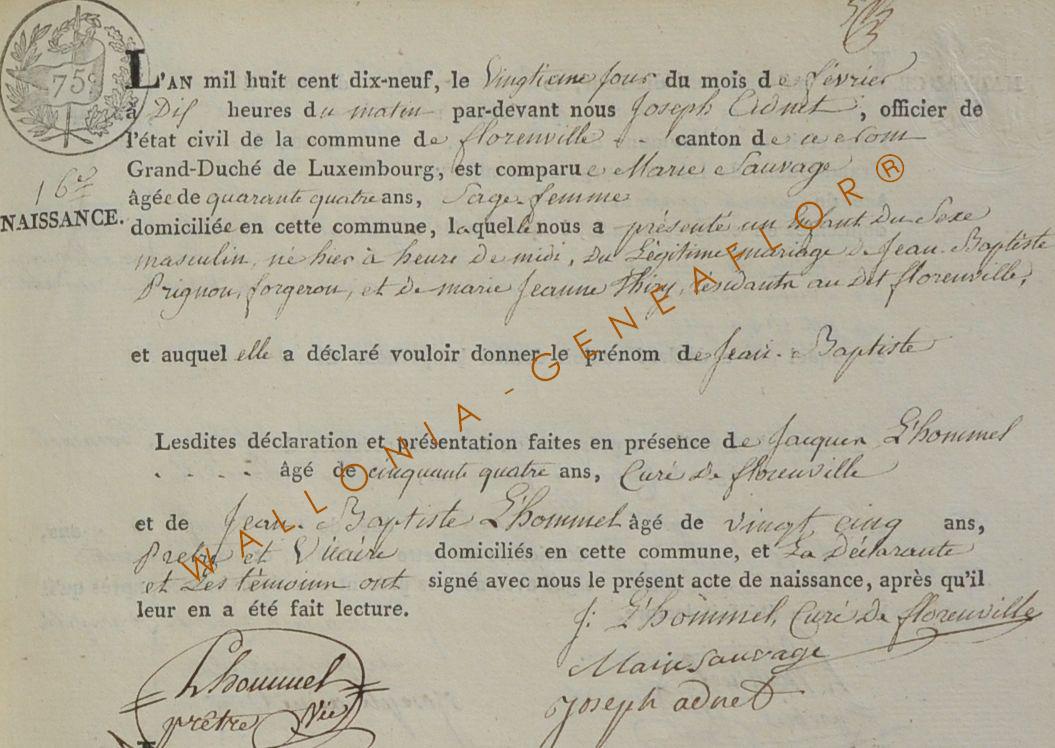 75c
L'AN mil huit cent dix-neuf, le Vingtieme jour du mois de février
à Dix heures du matin par-devant nous Joseph Adnet, officier de
l'état civil de la commune de florenville canton de ce nom
Grand-Duché de Luxembourg, est comparue Marie Sauvage
16e
NAISSANCE.
âgée de quarante quatre ans, Sage femme
domiciliée en cette commune, laquelle nous a présenté un enfant du Sexe
masculin, né hier à heure de midi, du Légitime mariage de Jean-Baptiste
Prignon, forgeron, et de marie Jeanne Thiry, résidants au dit florenville,
et auquel elle a déclaré vouloir donner le prénom de Jean-Baptiste
Lesdites déclaration et présentation faites en présence de Jacques L'hommel
âgé de cinquante quatre ans, Curé de florenville
et de Jean-Baptiste L'hommel âgé de vingt cinq ans,
Pretre et Vicaire domiciliés en cette commune, et La Déclarante
et Les témoins ont signé avec nous le présent acte de naissance, après qu'il
leur en a été fait lecture.
J: L'hommel, Curé de florenville
Marie Sauvage
Lhommel
prêtre Vic
joseph adnet
WALLONIA-GENEAFLOR®